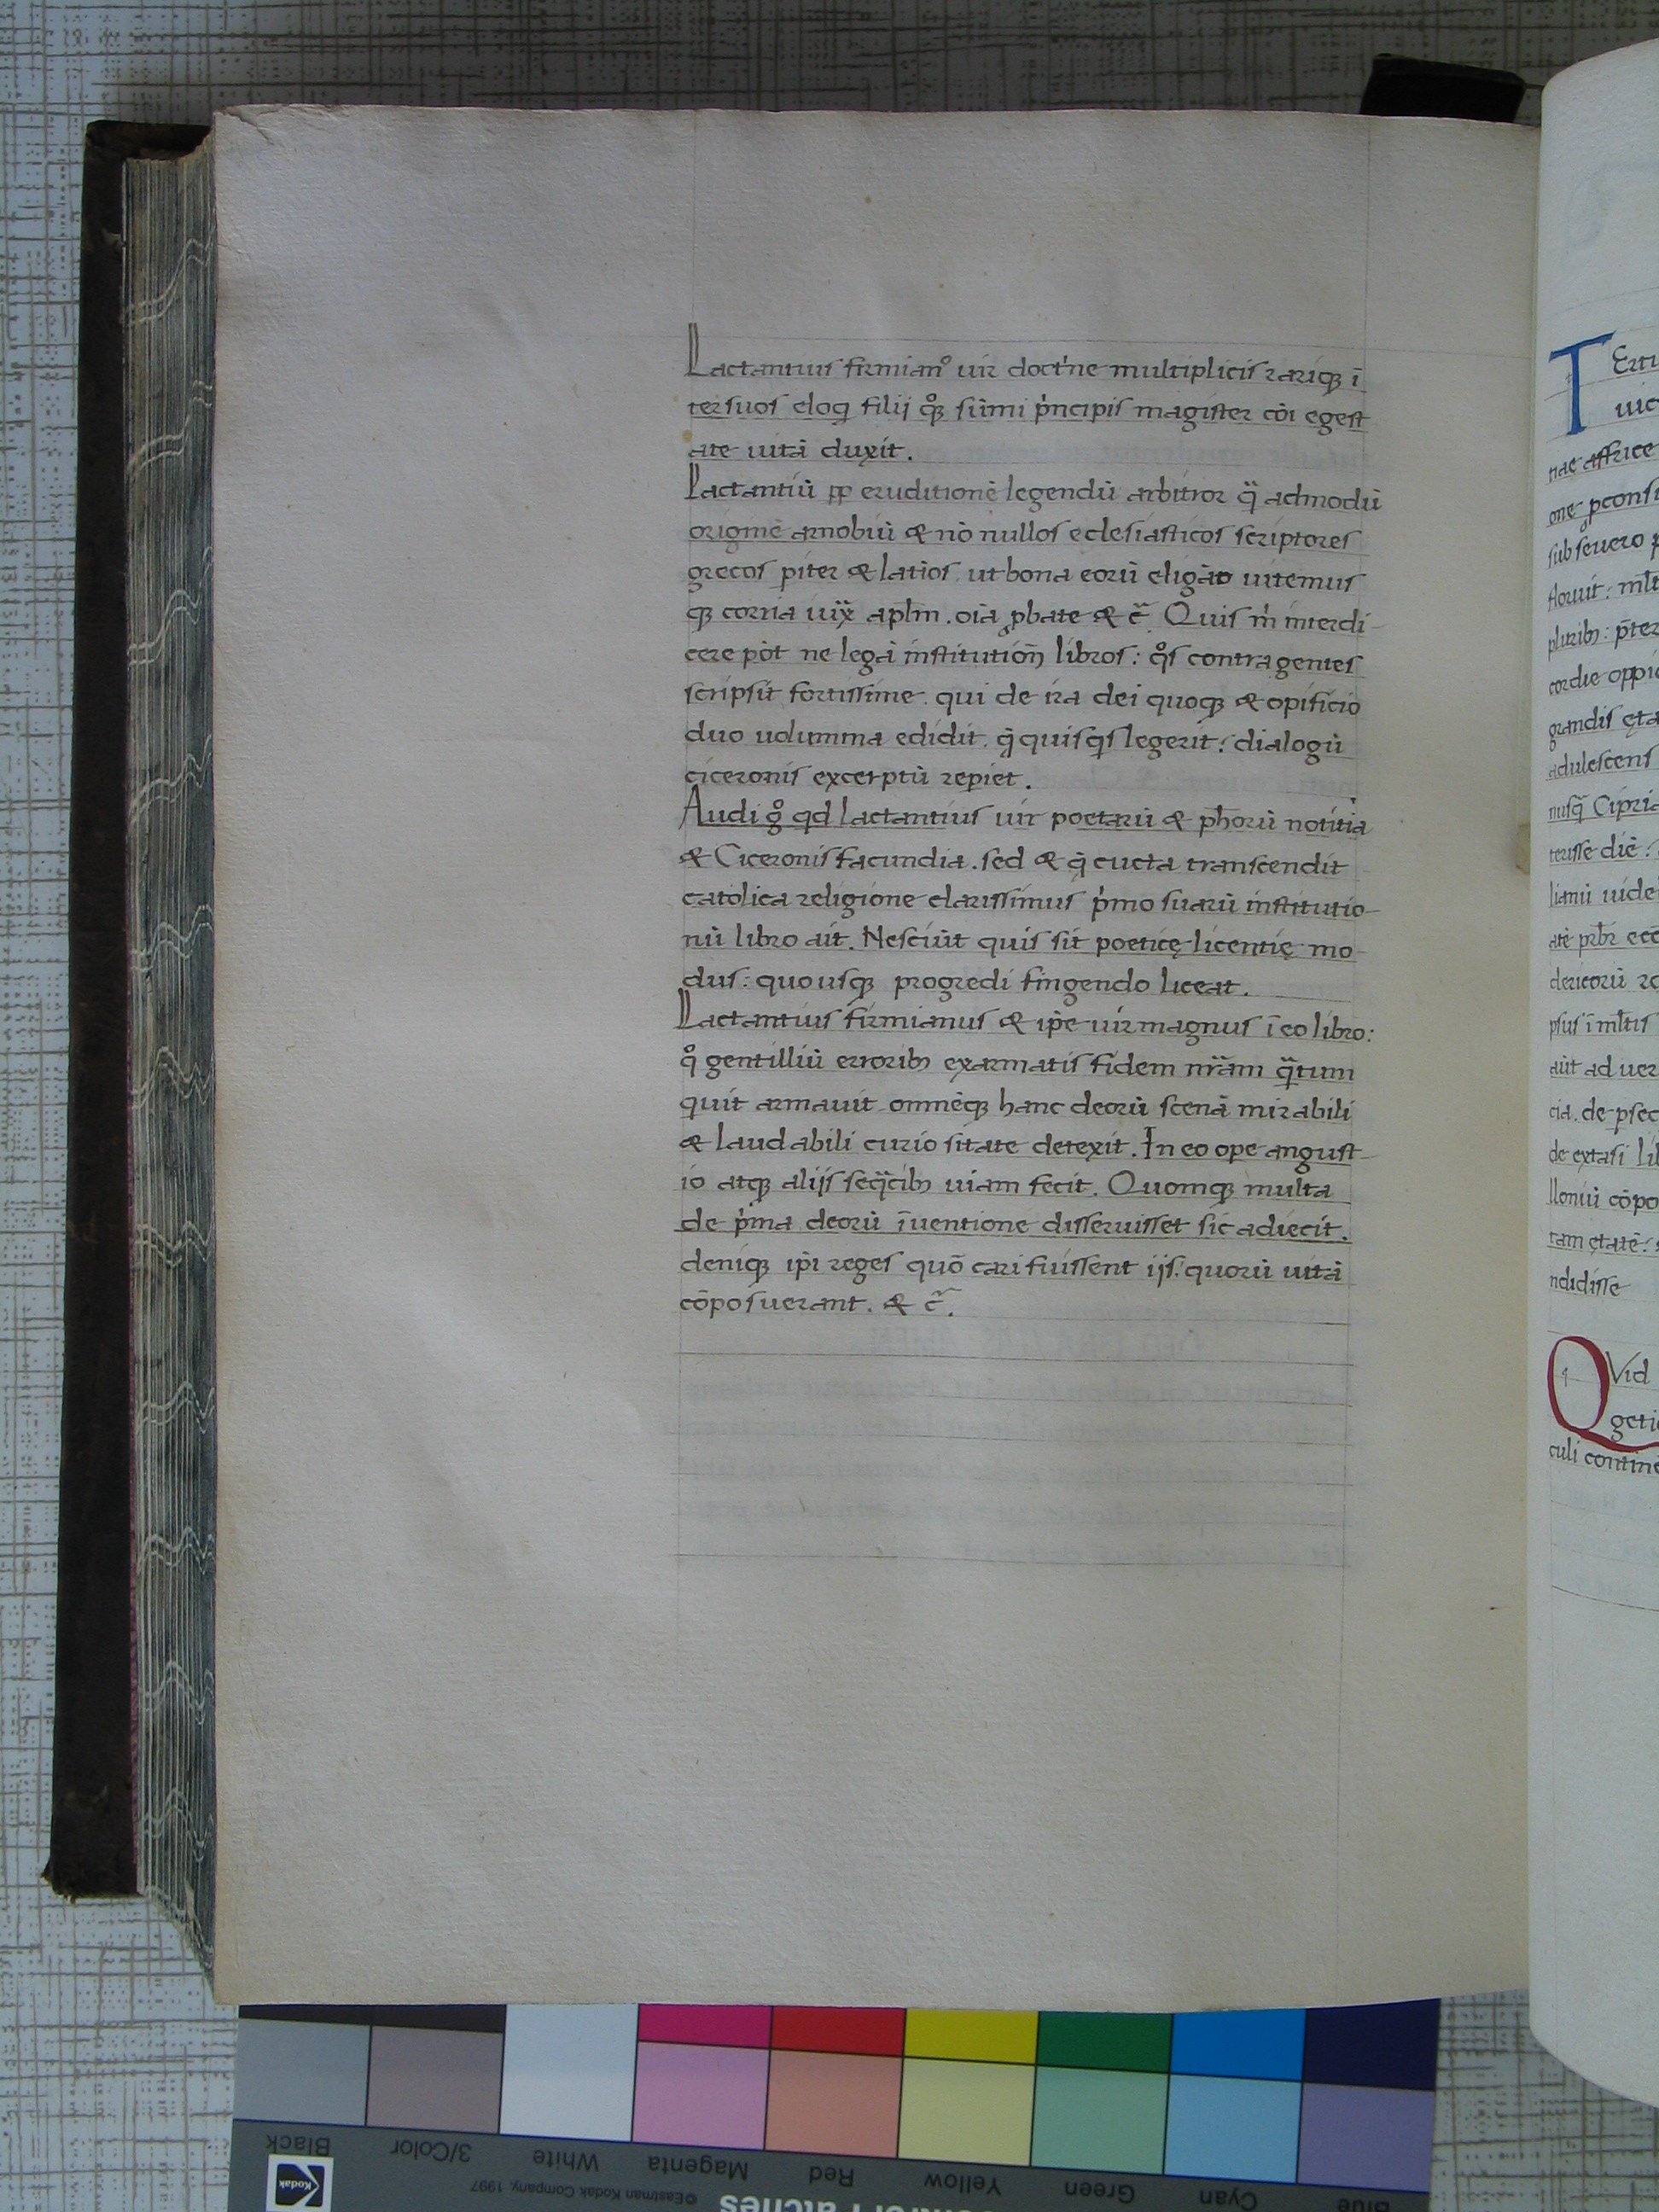 Lactantius firmianꝰ uir doct'ne multiplicis rariqꝫ ī
tersuos eloq filij qͦꝫ sūmi p'ncipis magister cōi egest
ate uitā duxit.
Lactantiū ꝓp eruditionē legendū arbitror qͣ admodū
origine arnobiū & nō nullos eclesiasticos scriptores
grecos piter & latīos. ut bona eorū eligāt uitemus
qꝫ corria iux̄ aplm. oīa ꝓbate & c̄. Quis m' interdi-
cere pōt ne legā institutioñ libros: qͦs contra gentes
scripsit fortissime. qui de ira dei quoqꝫ & opificio
duo uolumina edidit. q quisq's legerit: dialogū
ciceronis excerptū repiet.
Audi gͦ qd lactantius uir poetarū & ph̄orū notitia
& Ciceronis facundia. sed & q cūcta transcendit
catolica religione clarissimus p'mo suarū institutio-
nū libro ait. Nesciūt quis sit poeticę licentię mo-
dus: quo usqꝫ progredi fingendo liceat.
Lactantius firmianus & ip̄e uir magnus ī eo libro:
qͦ gentiliū erroribꝫ exarmatis fidem nr̄am qͣtum
quit armauit omnēqꝫ hanc deorū scenā mirabili
& laudabili curiositate detexit. In eo ope angust-
io atqꝫ alijs seqcibꝫ uiam fecit. Quomqꝫ multa
de p'ma deorū īuentione disseruisset sic adiecit.
deniqꝫ ip̄i reges quō cari fuissent ijs: quorū uitā
cōposuerant. & c̄.
T Erti
uic
nae affrice
one pconsu
sub seuero p
floruit: ml̄t
pluribꝫ: p̄ter
cordie oppid
grandis ęta
adulescens
nusq̄ Cipria
terisse diē:
lianū uide
atē prb̄r ecc
clericorū ro
psus ī ml̄tis
aūt ad uer
cia. de psec
de extasi lib
lloniū cōpo
tam ętatē:
ndidisse
QVid
geti
culi contine
Black
3/Color
White
Magenta
Red
Yellow
Green
Cyan
Blue
Kodak
©Eastman Kodak Company, 1997